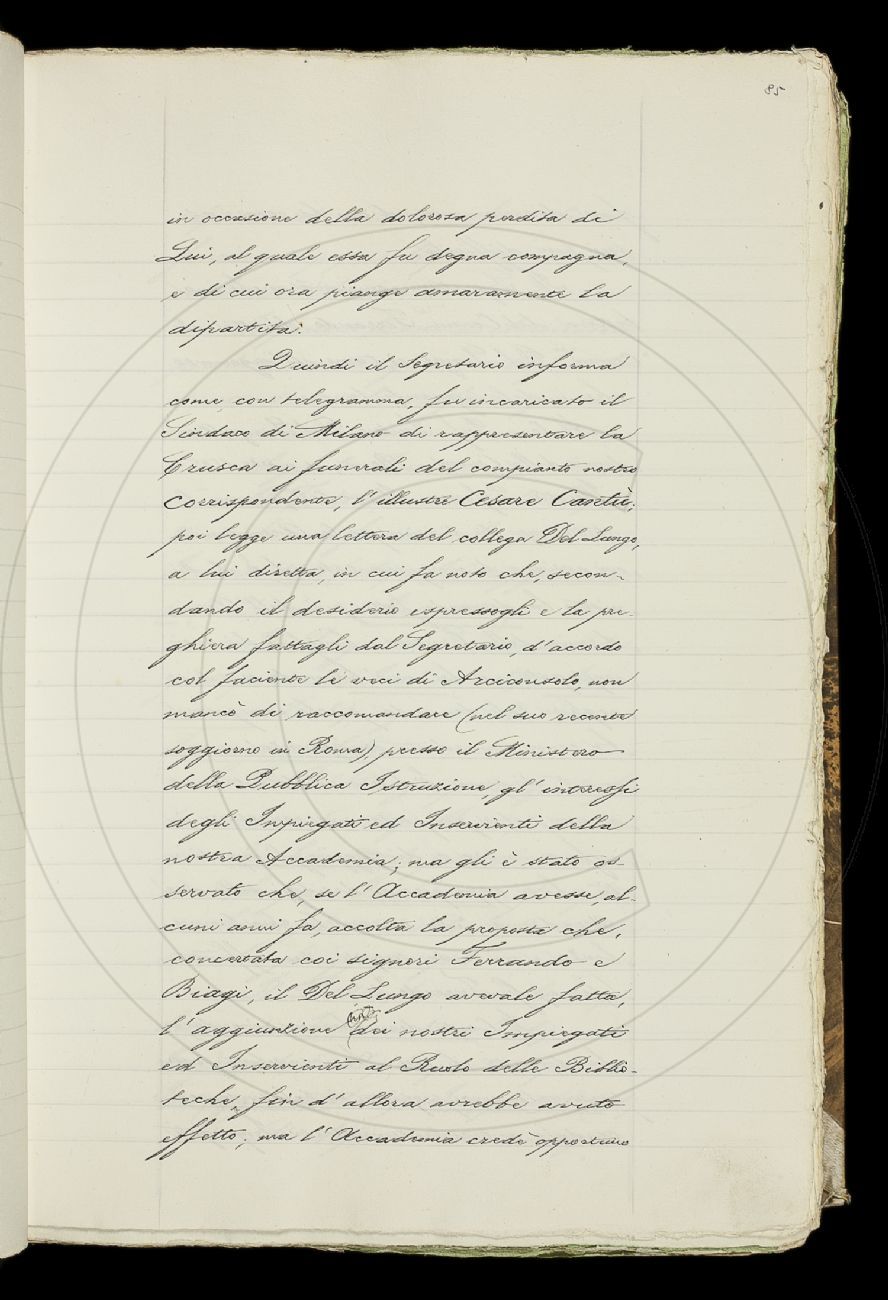 85
in occasione della dolorosa perdita di
Lui, al quale essa fu degna compagna,
e di cui ora piange amaramente la
dipartita.
Quindi il Segretario informa
come, con telegramma, fu incaricato il
Sindaco di Milano di rappresentare la
Crusca ai funerali del compianto nostro
Corrispondente, l'illustre Cesare Cantù;
poi legge una lettera del collega Del Lungo,
a lui diretta, in cui fa noto che, secon-
dando il desiderio espressogli e la pre-
ghiera fattagli dal Segretario, d'accordo
col faciente le veci di Arciconsolo, non
mancò di raccomandare (nel suo recente
soggiorno in Roma) presso il Ministero
della Pubblica Istruzione, gl'interessi
degli Impiegati ed Inservienti della
nostra Accademia; ma gli è stato os-
servato che, se l'Accademia avesse, al-
cuni anni fa, accolta la proposta che,
concertata coi signori Ferrando e
Biagi, il Del Lungo avevale fatta,
l'aggiunzione dei nostri Impiegati
ed Inservienti al Ruolo delle Biblio-
teche, fin d'allora avrebbe avuto
effetto; ma l'Accademia credè opportuno